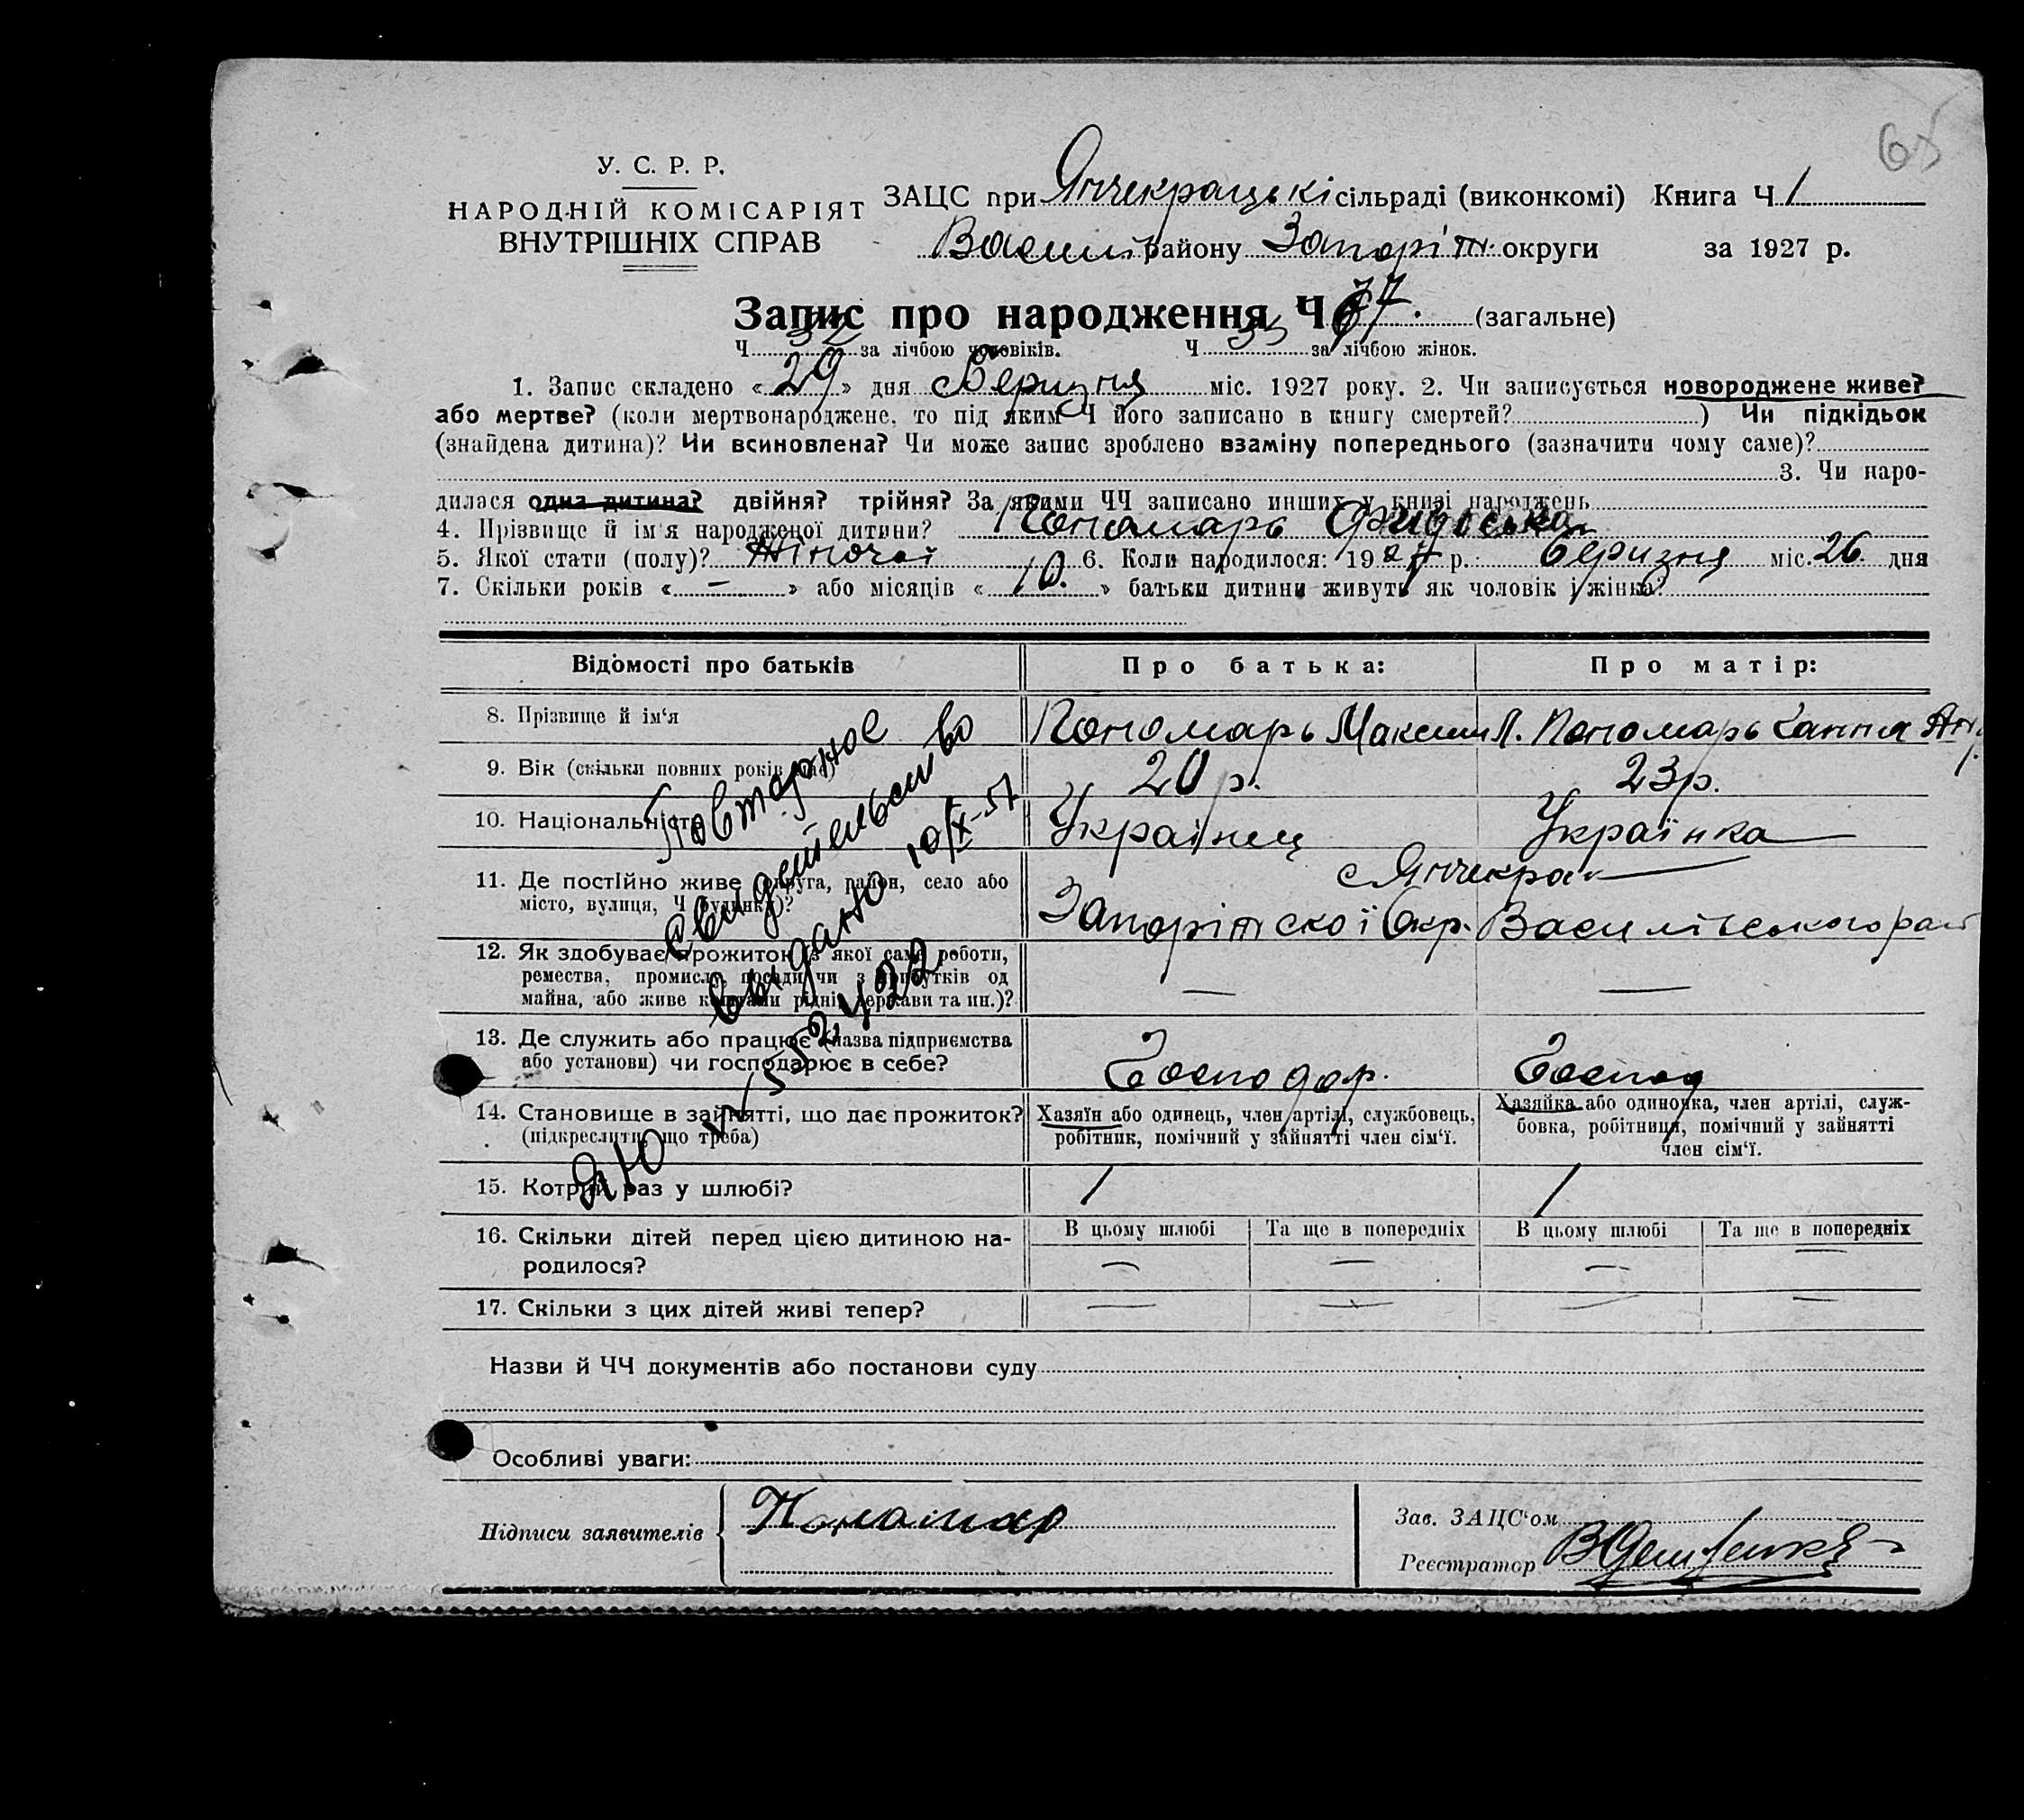 65
У. С. Р. Р.
НАРОДНІЙ КОМІСАРІЯТ
ВНУТРІШНІХ СПРАВ
ЗАЦС при Янчекрацькі сільраді (виконкомі) Книга Ч 1
Василів району Запоріж. округи за 1927 р.
Запис про народження Ч 67. 77 (загальне)
Ч 32 за лічбою чоловіків. Ч 35 за лічбою жінок.
1. Запис складено «29» дня Беризня міс. 1927 року. 2. Чи записується новороджене живе?
або мертве? (коли мертвонароджене, то під яким Ч його записано в книгу смертей? ) Чи підкідьок
(знайдена дитина)? Чи всиновлена? Чи може запис зроблено взаміну попереднього (зазначити чому саме)?
3. Чи наро-
дилася одна дитина? двійня? трійня? За якими ЧЧ записано инших у книзі народжень
4. Прізвище й ім'я народженої дитини? Пономарь
5. Якої стати (полу)? Жіночоі 6. Коли народилося: 1927 р. беризня міс. 26 дня
7. Скільки років « — » або місяців « 10. » батьки дитини живуть як чоловік і жінка?
Відомості про батьків
Про батька:
Про матір:
8. Прізвище й ім'я
Пономарь Максим Л.
Пономарь Ганна Ан
9. Вік (скільки повних років має)
20 р.
23р.
10. Національність
Українец
Українка
11. Де постійно живе (округа, район, село або
місто, вулиця, Ч будинку)?
с Янчекрак
Запоріжскої Окр. Василівського рай
12. Як здобуває прожиток (з якої саме роботи,
ремества, промислу, посади чи з прибутків од
майна, або живе коштами рідні, держави та ин.)?
—
—
13. Де служить або працює (назва підприємства
або установи) чи господарює в себе?
Господор.
Господ
14. Становище в зайнятті, що дає прожиток?
(підкреслити, що треба)
Хазяїн або одинець, член артілі, службовець,
робітник, помічний у зайнятті член сім'ї.
Хазяйка або одиночка, член артілі, служ-
бовка, робітниця, помічний у зайнятті
член сім'ї.
15. Котрий раз у шлюбі?
1
1
16. Скільки дітей перед цією дитиною на-
родилося?
В цьому шлюбі
Та ще в попередніх
В цьому шлюбі
Та ще в попередніх
— — — —
17. Скільки з цих дітей живі тепер?
— — — —
Повторное
свидетельство
выдано 10/X-51
ЯЮ № 552422
Назви й ЧЧ документів або постанови суду
Особливі уваги:
Підписи заявителів
Пономар
Зав. ЗАЦС'ом
Реєстратор